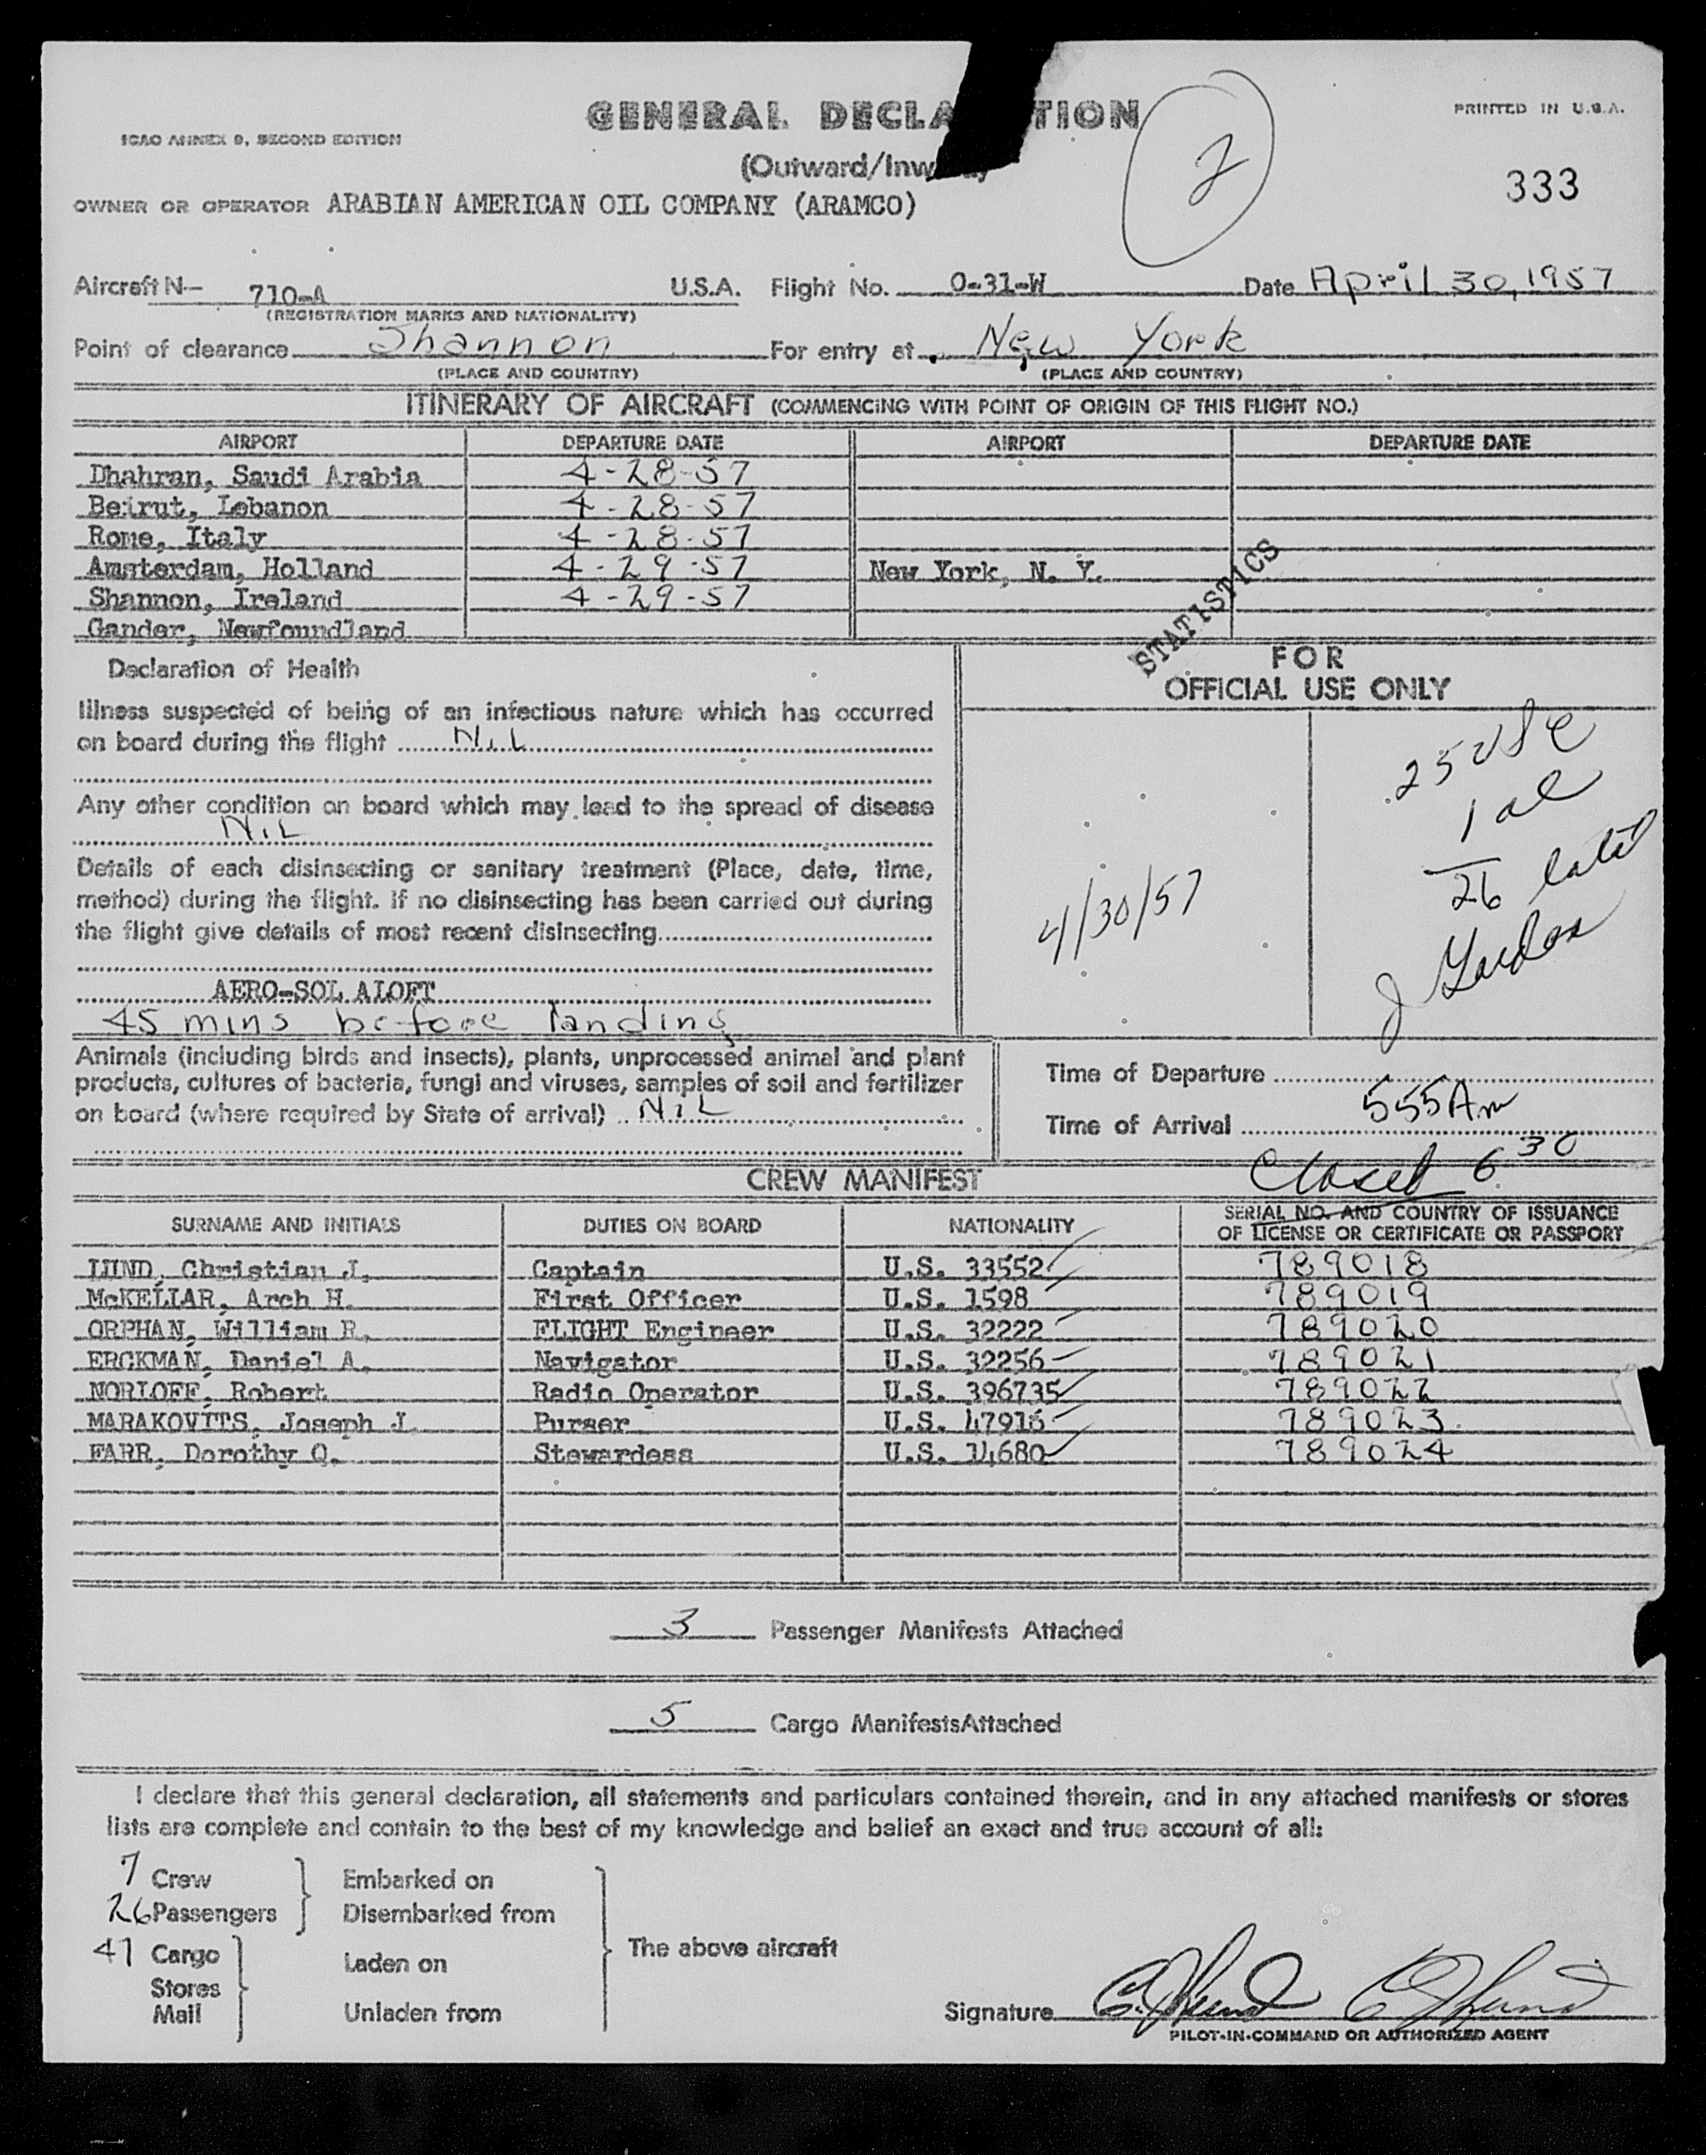 GENERAL DECLA TION
PRINTED IN U.S.A.
ICAO ANNEX 9, SECOND EDITION
(Outward/Inw
2
333
OWNER OR OPERATOR ARABIAN AMERICAN OIL COMPANY (ARAMCO)
Aircraft N— 710-A U.S.A. Flight No. 0-31-W Date April 30, 1957
(REGISTRATION MARKS AND NATIONALITY)
Point of clearance Shannon For entry at New York
(PLACE AND COUNTRY) (PLACE AND COUNTRY)
ITINERARY OF AIRCRAFT (COMMENCING WITH POINT OF ORIGIN OF THIS FLIGHT NO.)
AIRPORT DEPARTURE DATE AIRPORT DEPARTURE DATE
Dhahran, Saudi Arabia 4-28-57
Beirut, Lebanon 4-28-57
Rome, Italy 4-28-57
Amsterdam, Holland 4-29-57 New York, N. Y.
Shannon, Ireland 4-29-57
Gander, Newfoundland
STATISTICS
Declaration of Health
FOR
OFFICIAL USE ONLY
Illness suspected of being of an infectious nature which has occurred
on board during the flight Nil
25 USC
1 al
26 total
Any other condition on board which may lead to the spread of disease
Nil
Details of each disinsecting or sanitary treatment (Place, date, time,
method) during the flight. If no disinsecting has been carried out during
the flight give details of most recent disinsecting
4/30/57
AERO-SOL ALOFT
45 mins before landing
Animals (including birds and insects), plants, unprocessed animal and plant
products, cultures of bacteria, fungi and viruses, samples of soil and fertilizer
on board (where required by State of arrival) Nil
Time of Departure
Time of Arrival 555 Am
Closed 6 30
CREW MANIFEST
SURNAME AND INITIALS DUTIES ON BOARD NATIONALITY SERIAL NO. AND COUNTRY OF ISSUANCE
OF LICENSE OR CERTIFICATE OR PASSPORT
LUND, Christian J. Captain U.S. 33552 789018
McKELLAR, Arch H. First Officer U.S. 1598 789019
ORPHAN, William R. FLIGHT Engineer U.S. 32222 789020
ERCKMAN, Daniel A. Navigator U.S. 32256 789021
NORLOFF, Robert Radio Operator U.S. 396735 789022
MARAKOVITS, Joseph J. Purser U.S. 47916 789023
FARR, Dorothy Q. Stewardess U.S. 14680 789024
3 Passenger Manifests Attached
5 Cargo ManifestsAttached
I declare that this general declaration, all statements and particulars contained therein, and in any attached manifests or stores
lists are complete and contain to the best of my knowledge and belief an exact and true account of all:
7 Crew Embarked on
26 Passengers Disembarked from
41 Cargo Laden on The above aircraft
Stores
Mail Unladen from
Signature C. J. Lund C. J. Lund
PILOT-IN-COMMAND OR AUTHORIZED AGENT